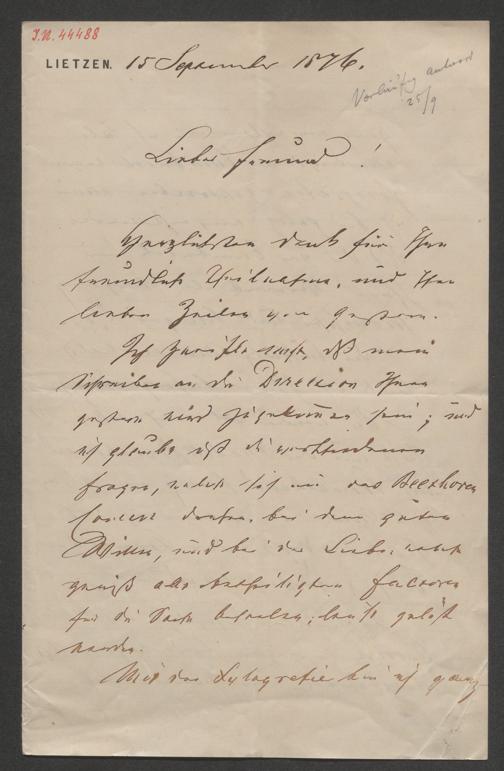 J.N. 44488
LIETZEN. 15 September 1876.
Vorläufig antwort
25/9
Lieber Freund!
Herzlichsten Dank für Ihre
freundliche Theilnahme, und Ihre
lieben Zeilen von gestern.
Ich zweifle nicht, dß mein
Schreiben an die Direction Ihnen
gestern wird zugekommen sein; und
ich glaube dß die vorhandenen
Fragen, welche sich um das Beethoven
Concert drehen, bei dem guten
Willen, und bei der Liebe, welche
gewiß alle betheiligten Factoren
für die Sache beseelen, leicht gelöst
werden.
Mit der bin ich ganz